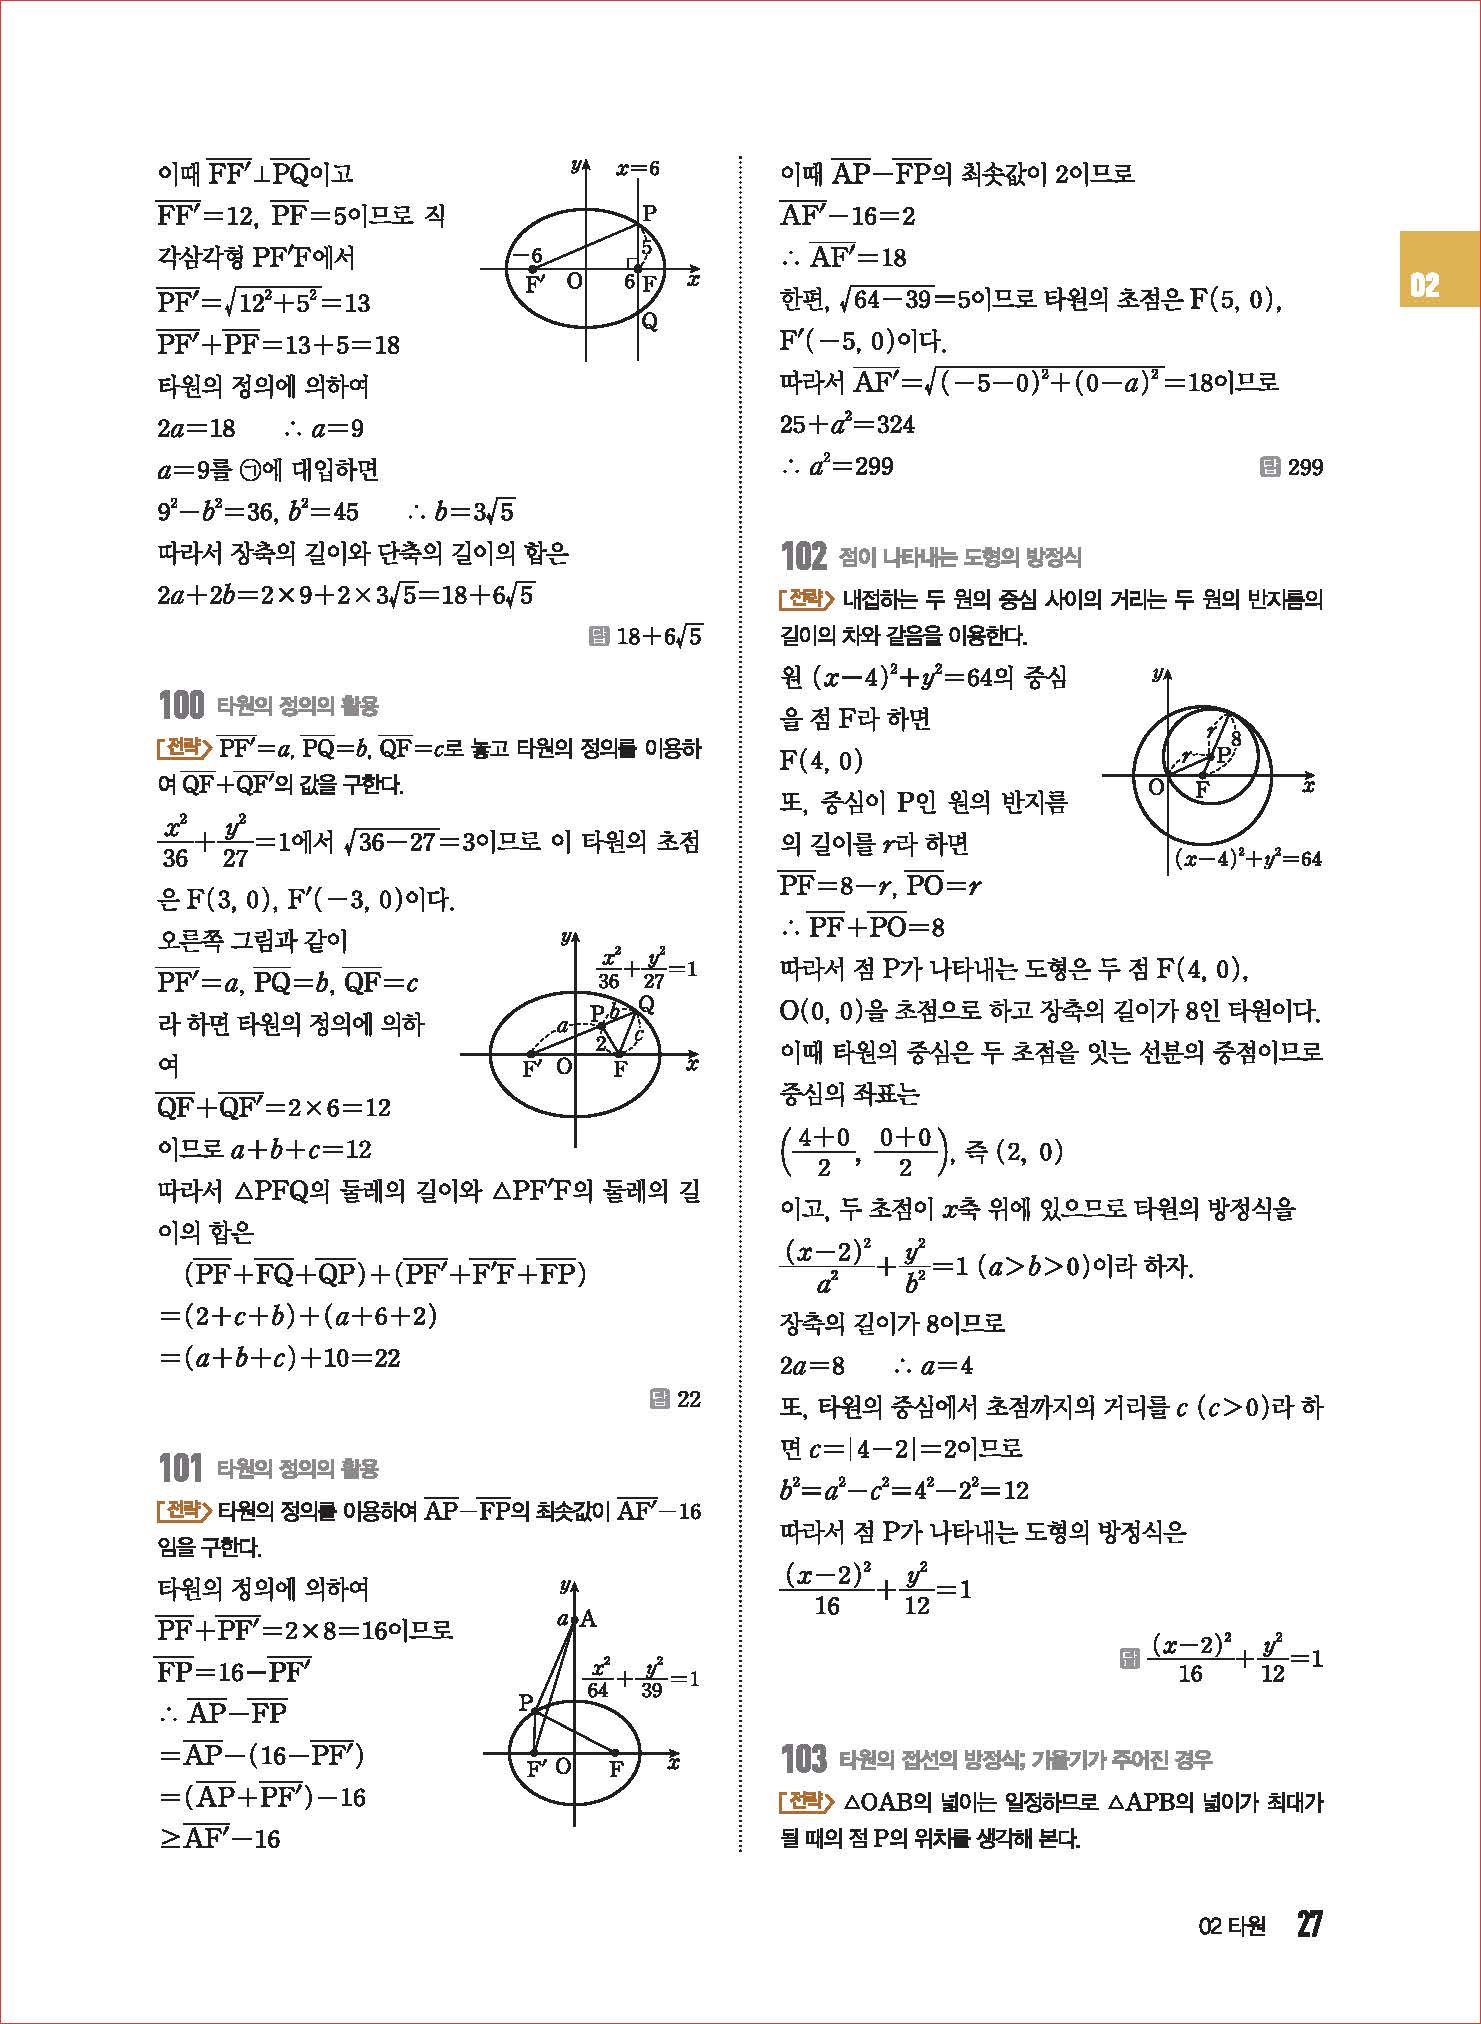 이때 FF′⊥PQ이고
FF′=12, PF=5이므로 직
각삼각형 PF′F에서
PF′=√12²+5²=13
PF′+PF=13+5=18
타원의 정의에 의하여
2a=18 ∴ a=9
a=9를 ㉠에 대입하면
9²−b²=36, b²=45 ∴ b=3√5
따라서 장축의 길이와 단축의 길이의 합은
2a+2b=2×9+2×3√5=18+6√5
답 18+6√5
y x=6
P
5
−6
F′ O 6 F x
Q
100 타원의 정의의 활용
전략 PF′=a, PQ=b, QF=c로 놓고 타원의 정의를 이용하
여 QF+QF′의 값을 구한다.
x²/36+y²/27=1에서 √36−27=3이므로 이 타원의 초점
은 F(3, 0), F′(−3, 0)이다.
오른쪽 그림과 같이
PF′=a, PQ=b, QF=c
라 하면 타원의 정의에 의하
여
QF+QF′=2×6=12
이므로 a+b+c=12
y
x²/36+y²/27=1
P b Q
a 2 c
F′ O F x
따라서 △PFQ의 둘레의 길이와 △PF′F의 둘레의 길
이의 합은
(PF+FQ+QP)+(PF′+F′F+FP)
=(2+c+b)+(a+6+2)
=(a+b+c)+10=22
답 22
101 타원의 정의의 활용
전략 타원의 정의를 이용하여 AP−FP의 최솟값이 AF′−16
임을 구한다.
타원의 정의에 의하여
PF+PF′=2×8=16이므로
FP=16−PF′
∴ AP−FP
=AP−(16−PF′)
=(AP+PF′)−16
≥AF′−16
y
a A
x²/64+y²/39=1
P
F′ O F x
이때 AP−FP의 최솟값이 2이므로
AF′−16=2
∴ AF′=18
한편, √64−39=5이므로 타원의 초점은 F(5, 0),
F′(−5, 0)이다.
따라서 AF′=√(−5−0)²+(0−a)²=18이므로
25+a²=324
∴ a²=299
답 299
102 점이 나타내는 도형의 방정식
전략 내접하는 두 원의 중심 사이의 거리는 두 원의 반지름의
길이의 차와 같음을 이용한다.
원 (x−4)²+y²=64의 중심
을 점 F라 하면
F(4, 0)
또, 중심이 P인 원의 반지름
의 길이를 r라 하면
PF=8−r, PO=r
∴ PF+PO=8
y
r 8
r P
O F x
(x−4)²+y²=64
따라서 점 P가 나타내는 도형은 두 점 F(4, 0),
O(0, 0)을 초점으로 하고 장축의 길이가 8인 타원이다.
이때 타원의 중심은 두 초점을 잇는 선분의 중점이므로
중심의 좌표는
(4+0/2, 0+0/2), 즉 (2, 0)
이고, 두 초점이 x축 위에 있으므로 타원의 방정식을
(x−2)²/a²+y²/b²=1 (a>b>0)이라 하자.
장축의 길이가 8이므로
2a=8 ∴ a=4
또, 타원의 중심에서 초점까지의 거리를 c (c>0)라 하
면 c=|4−2|=2이므로
b²=a²−c²=4²−2²=12
따라서 점 P가 나타내는 도형의 방정식은
(x−2)²/16+y²/12=1
답 (x−2)²/16+y²/12=1
103 타원의 접선의 방정식; 기울기가 주어진 경우
전략 △OAB의 넓이는 일정하므로 △APB의 넓이가 최대가
될 때의 점 P의 위치를 생각해 본다.
02
02 타원 27